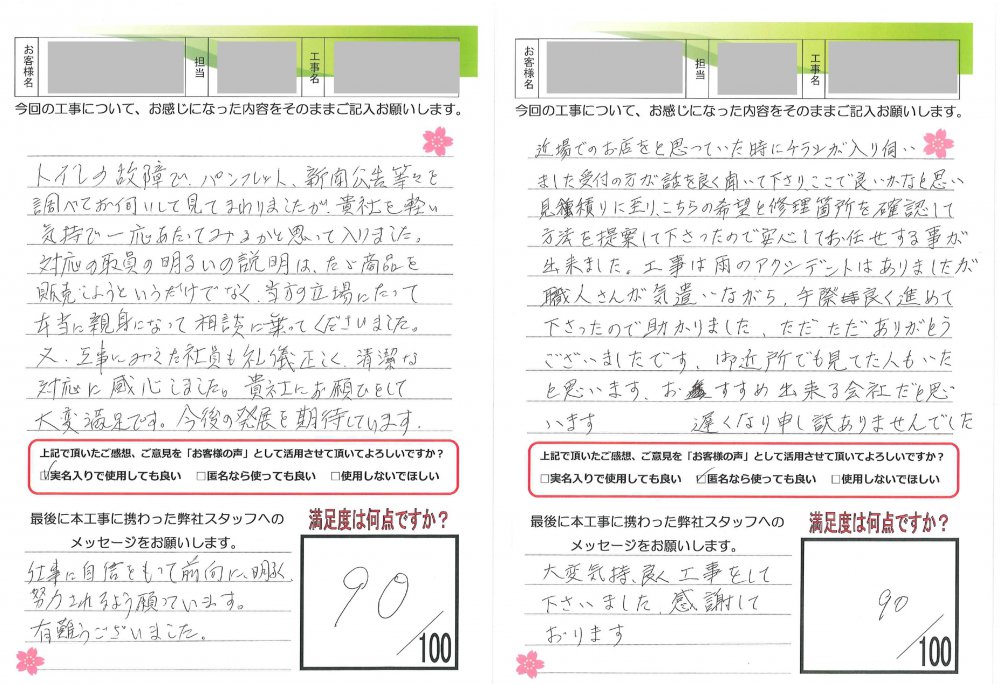 お客様名
担当
工事名
今回の工事について、お感じになった内容をそのままご記入お願いします。
トイレの故障で、パンフレット、新聞公告等々を
調べてお伺いして見てまわりましたが、貴社を軽い
気持で一応あたってみるかと思って入りました。
対応の取員の明るいの説明は、たゞ商品を
販売しようというだけでなく、当方の立場にたって
本当に親身になって相談に乗ってくださいました。
又、工事にみえた社員も礼儀正しく、清潔な
対応に感心しました。貴社にお願ひをして
大変満足です。今後の発展を期待しています.
上記で頂いたご感想、ご意見を「お客様の声」として活用させて頂いてよろしいですか?
☑実名入りで使用しても良い □匿名なら使っても良い □使用しないでほしい
最後に本工事に携わった弊社スタッフへの
メッセージをお願いします。
仕事に自信をもって前向に、明るく、
努力されるよう願っています。
有難うございました。
満足度は何点ですか?
90
/100
お客様名
担当
工事名
今回の工事について、お感じになった内容をそのままご記入お願いします。
近場でのお店をと思っていた時にチラシが入り伺い
ました受付の方が話を良く聞いて下さりここで良いかなと思い
見積積りに至り、こちらの希望と修理箇所を確認して
方法を提案して下さったので安心してお任せする事が
出来ました。工事は雨のアクシデントはありましたが
職人さんが気遣いながら、手際良く進めて
下さったので助かりました、ただただありがとう
ございましたです、御近所でも見てた人もいた
と思います、おすすめ出来る会社だと思
います 遅くなり申し訳ありませんでした
上記で頂いたご感想、ご意見を「お客様の声」として活用させて頂いてよろしいですか?
□実名入りで使用しても良い ☑匿名なら使っても良い □使用しないでほしい
最後に本工事に携わった弊社スタッフへの
メッセージをお願いします。
大変気持、良く工事をして
下さいました、感謝して
おります
満足度は何点ですか?
90
/100